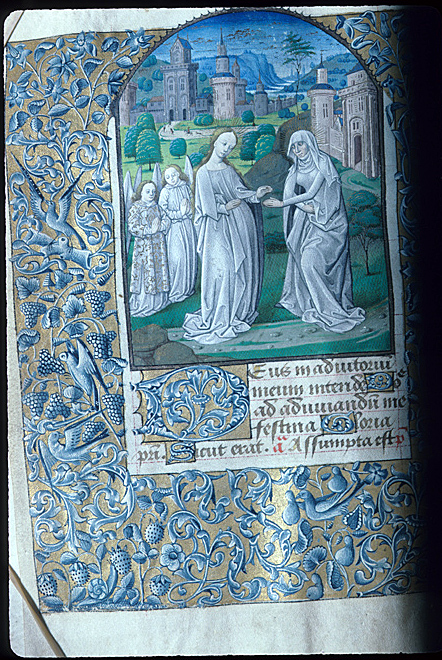 Deus in adiutoriu
meum intende
ad adiuuandu me
festina Gloria
pri. Sicut erat. a Assumpta est